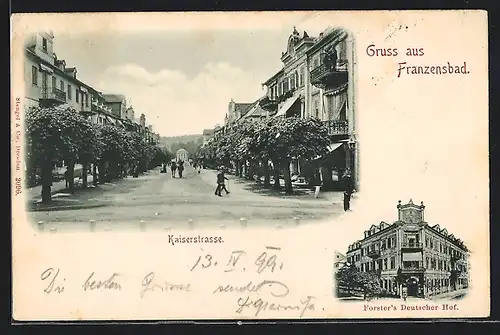 Gruss aus
Franzensbad.
Stengel & Co., Dresden 2096.
Kaiserstrasse.
13. IV 99.
Die besten Grüsse sendet
Forster's Deutscher Hof.